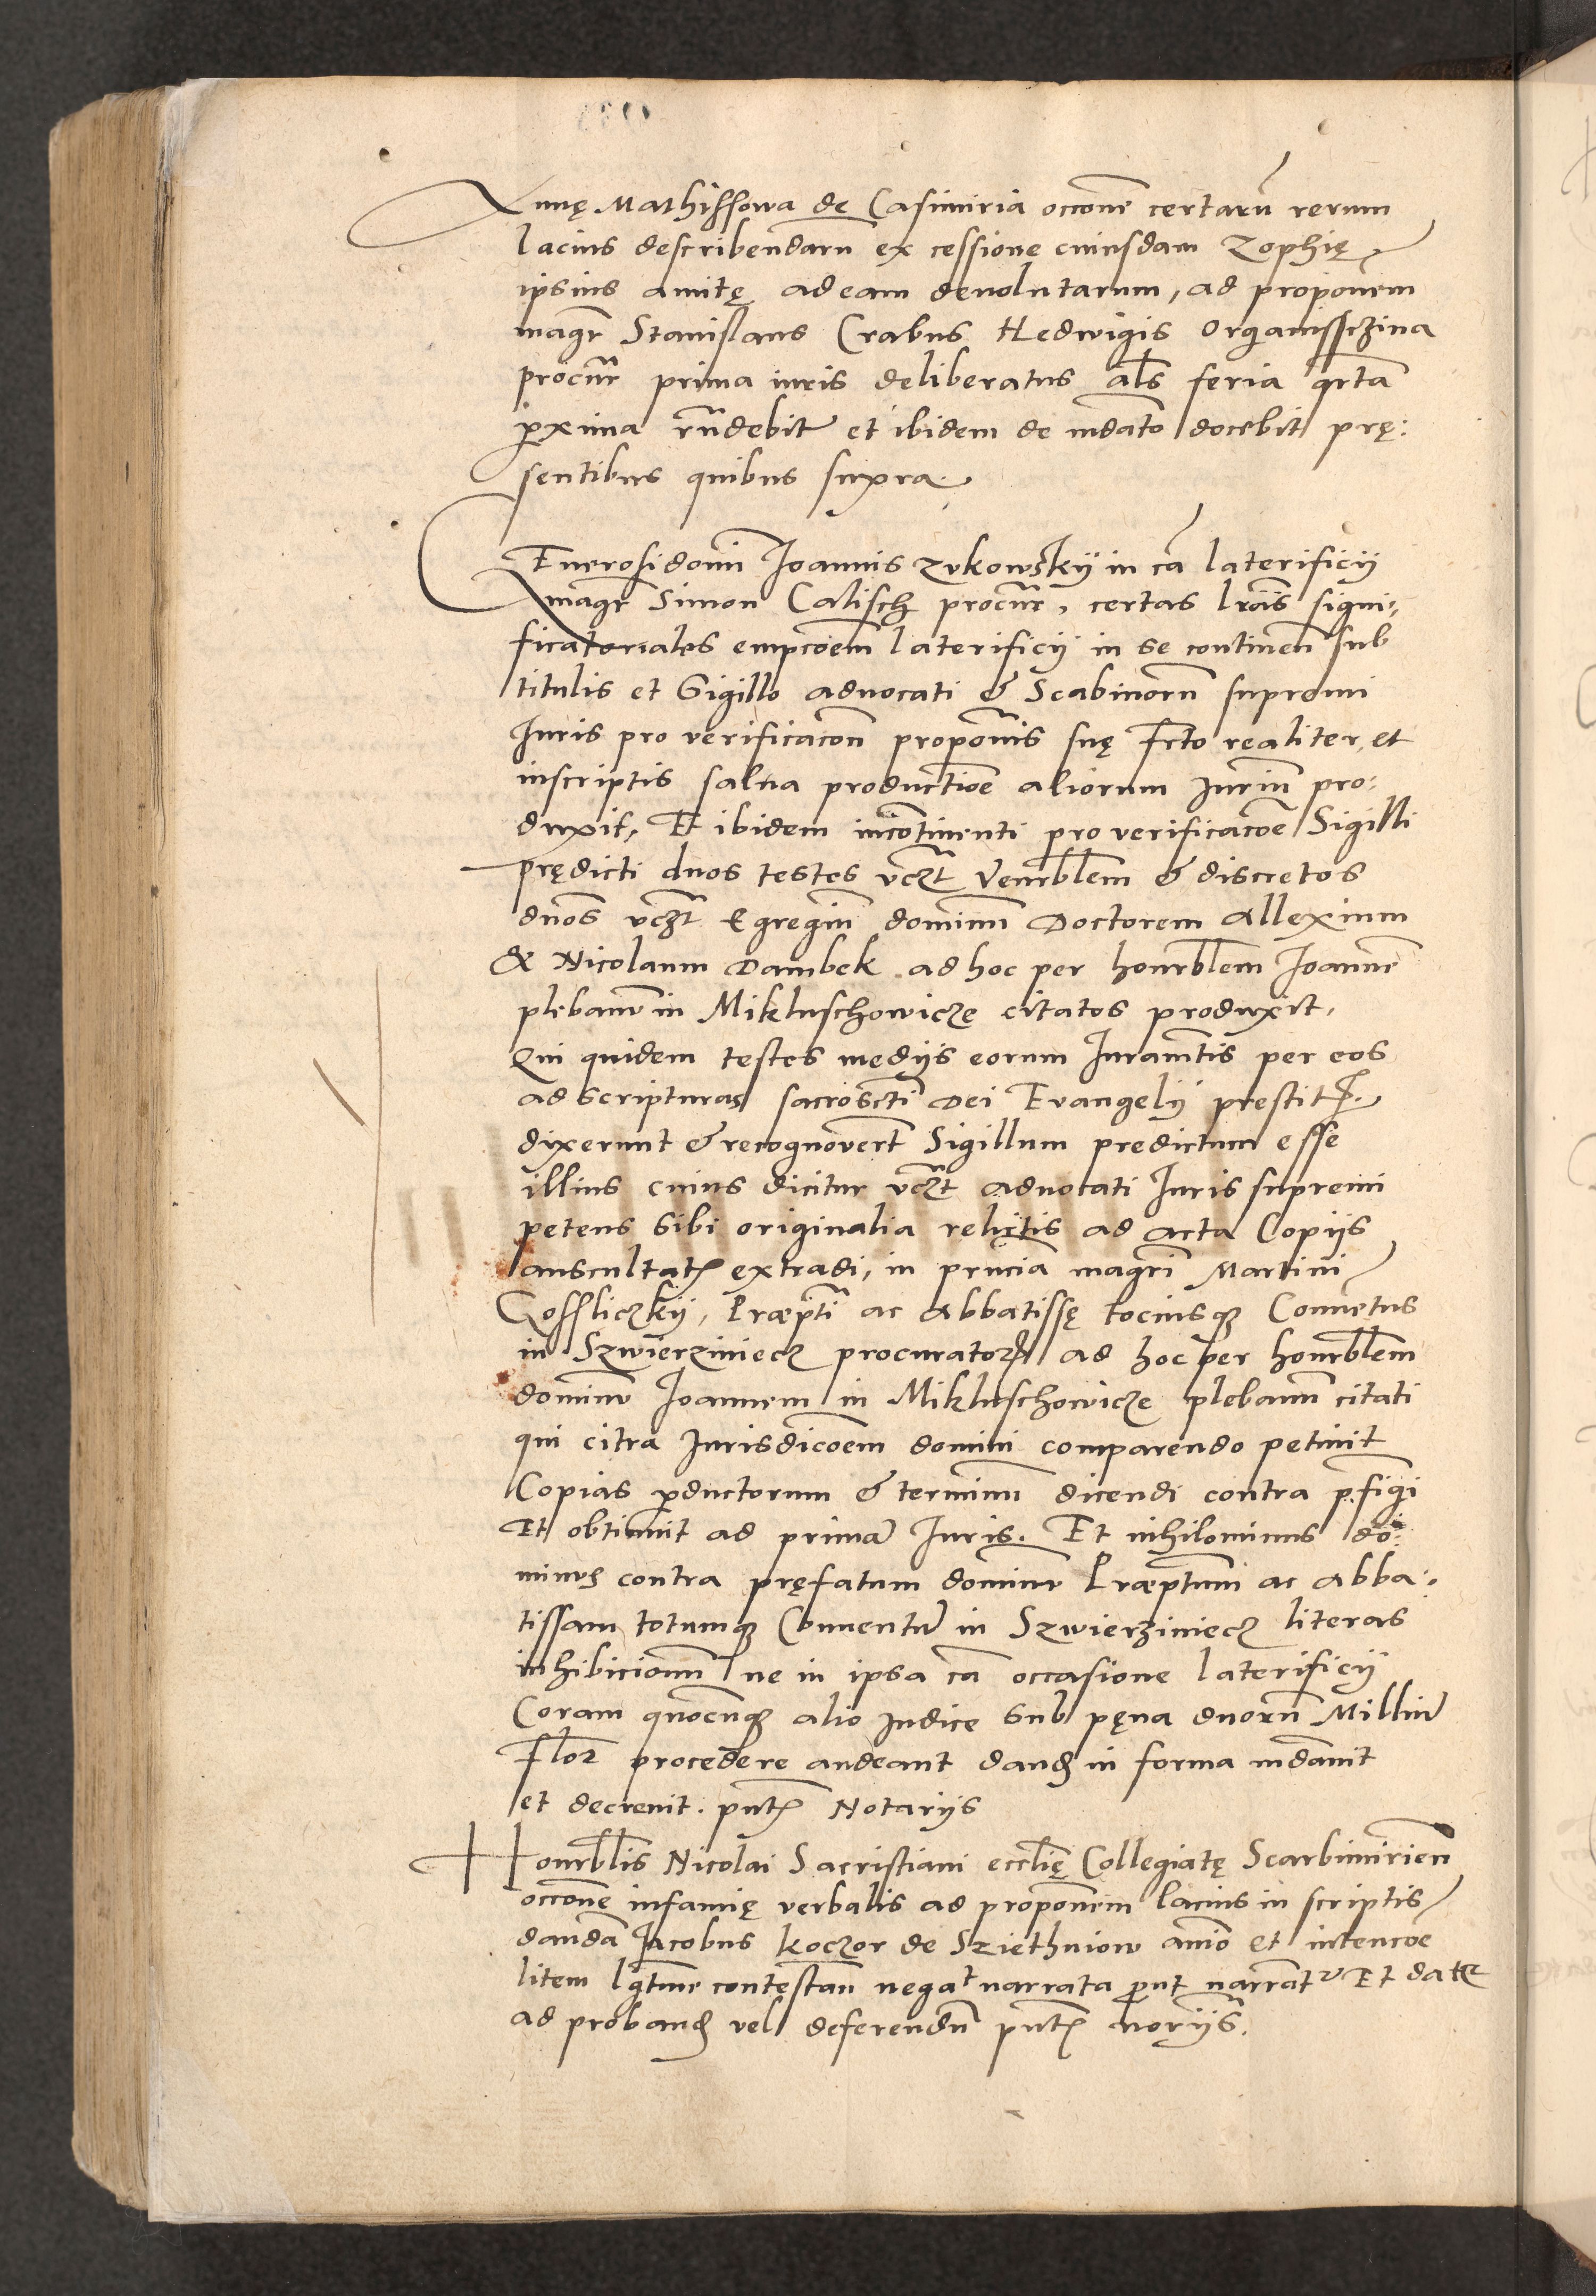 Annę Mathissowa de Casimiria occone certaru rerum
lacius describendaru ex cessione cuiusdam Zophię
ipsius amitę ad eam devolutarum, ad proponem
magr Stanislaus Crabus Hedwigis Organisſczina
procur prima iuris deliberatus als feria qrta
pxima rndebit et ibidem de mdato docebit prę:
sentibus quibus supra.
Generosi domi Joannis Zukowskÿ in ca laterificÿ
magr Simon Calisch procur, certas lras signi,
ficatoriales empcoem laterificÿ in se continen sub
titulis et Sigillo advocati & Scabinoru supremi
Juris pro verificacon proponis suę fcto realiter, et
inscriptis salva productioe aliorum Juriu pro:
duxit, Et ibidem incontinenti pro verificacoe Sigilli
prędicti duos testes vczt Venrblem & discretos
dnos vczt Egregiu dominu Doctorem Allexium
& Nicolaum Dambek ad hoc per honrblem Joanne
plebanu in Mikluschowicze citatos produxit,
Qui quidem testes medÿs eorum Juramtis per eos
ad scripturas sacroscti Dei Evangelÿ prestit
dixerunt & recognovert Sigillum predictum esse
illius cuius dicitur vczt advocati Juris supremi
petens sibi originalia relictis ad acta Copÿs
auscultat extradi, in prncia magri Martini
Gosslicżkÿ, Præpti ac Abbatissę tociusq Conuetus
in Szwierziniecz procurator ad hoc per honrblem
dominu Joannem in Mikluschowicze plebanu citati
qui citra Jurisdicoem domini comparendo petiuit
Copias pductorum & terminu dicendi contra pfigi
Et obtinuit ad prima Juris. Et nihilominus do:
minus contra pręfatum dominu Præptum ac Abba:
tissam totumq Conuentu in Szwierziniecz literas
inhibicionu ne in ipsa ca occasione laterificÿ
Coram quocunq alio Judice sub pęna duoru Milliu
Flor procedere audeant dand in forma mdauit
et decreuit. pntᷣ Notarÿs
Honrblis Nicolai Sacristiani ecclię Collegiatę Scarbimirien
occone infamię verbalis ad proponem lacius in scriptis
danda Jacobus koczor de Sziethniow animo et intencoe
litem lgtime contestan negat narrata prout narratr Et datr
ad proband vel deferendu pnt norÿs.